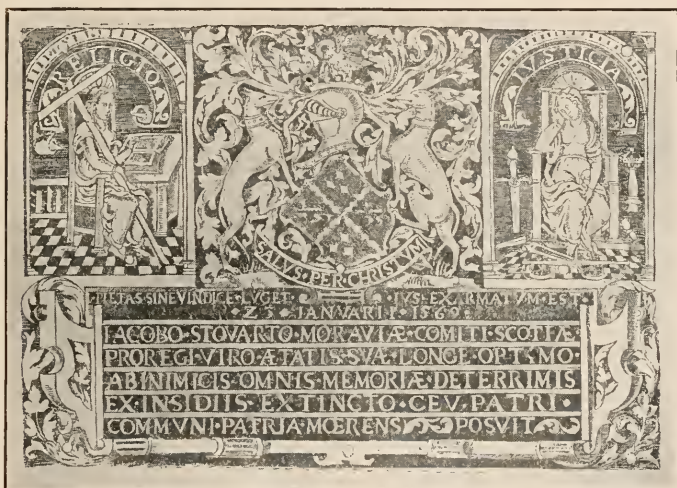 RELIGIO
IVSTICIA
SALVS·PER·CHRISTVM
PIETAS·SINE VINDICE·LVGET· ·IVS·EXARMATVM·EST·
·23·IANVARII·1569·
IACOBO·STOVARTO·MORAVIÆ·COMITI·SCOTIÆ
PROREGI·VIRO·ÆTATIS·SVÆ·LONGE·OPT·MO·
AB INIMICIS·OMNIS·MEMORIÆ·DETERRIMIS
EX·INSIDIIS·EXTINCTO·CEV·PATRI·
COMMVNI·PATRIA·MŒRENS POSVIT